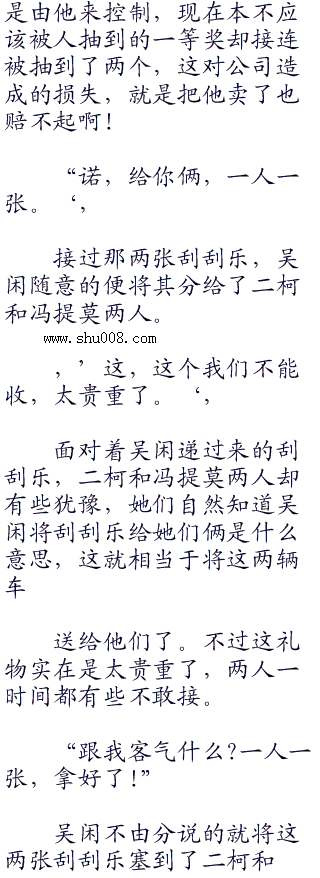 是由他来控制，现在本不应
该被人抽到的一等奖却接连
被抽到了两个，这对公司造
成的损失，就是把他卖了也
赔不起啊！
“诺，给你俩，一人一
张。‘，
接过那两张刮刮乐，吴
闲随意的便将其分给了二柯
和冯提莫两人。
www.shu008.com
，’这，这个我们不能
收，太贵重了。‘，
面对着吴闲递过来的刮
刮乐，二柯和冯提莫两人却
有些犹豫，她们自然知道吴
闲将刮刮乐给她们俩是什么
意思，这就相当于将这两辆
车
送给他们了。不过这礼
物实在是太贵重了，两人一
时间都有些不敢接。
“跟我客气什么?一人一
张，拿好了!”
吴闲不由分说的就将这
两张刮刮乐塞到了二柯和